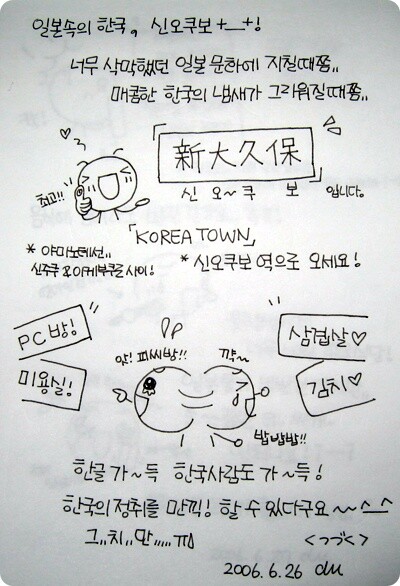 일본속의 한국, 신오쿠보 +_+!
너무 삭막했던 일본 문화에 지칠때쯤..
매콤한 한국의 냄새가 그리워질때쯤..
「新大久保」
최고!!
신 오~쿠 보 입니다.
「KOREA TOWN」
* 야마노테센..
신주쿠 & 이케부쿠로 사이!
* 신오쿠보 역으로 오세요!
PC방!
삼겹살♡
앗! 피씨방!!
꺅~
미용실!
김치♡
밥밥밥!!
한글 가~득 한국사람도 가~득!
한국의 정취를 만끽! 할 수 있다구요 ~~^_^
그..치..만.....
<つづく>
2006.6.26